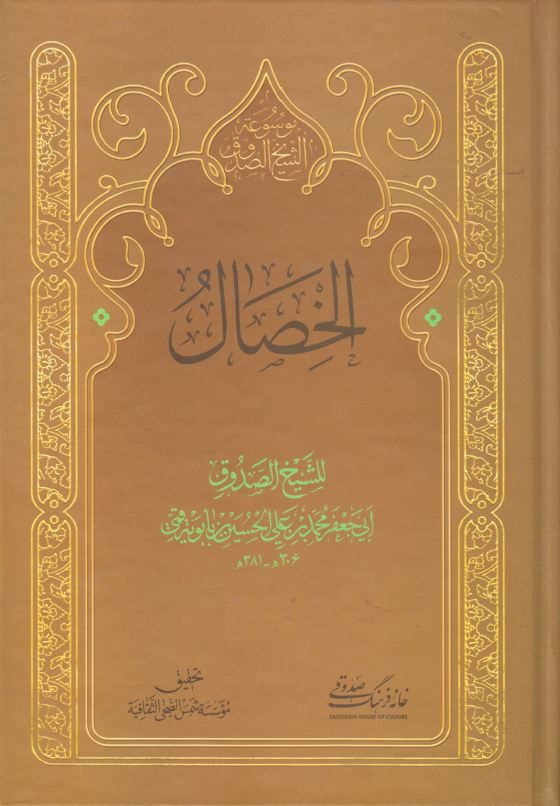 موسوعة
الشيخ الصدوق
الخِصَالُ
للشَّيخ الصَّدُوق
أبي جعفر محمد بن علي الحسين بن بابويه قمي
۳۰۶ه - ۳۸۱ه
تحقيق
مؤسسة شمس الضحى الثقافية
خانه فرهنگ صدوقی
SADOUGHI HOUSE OF CULTURE